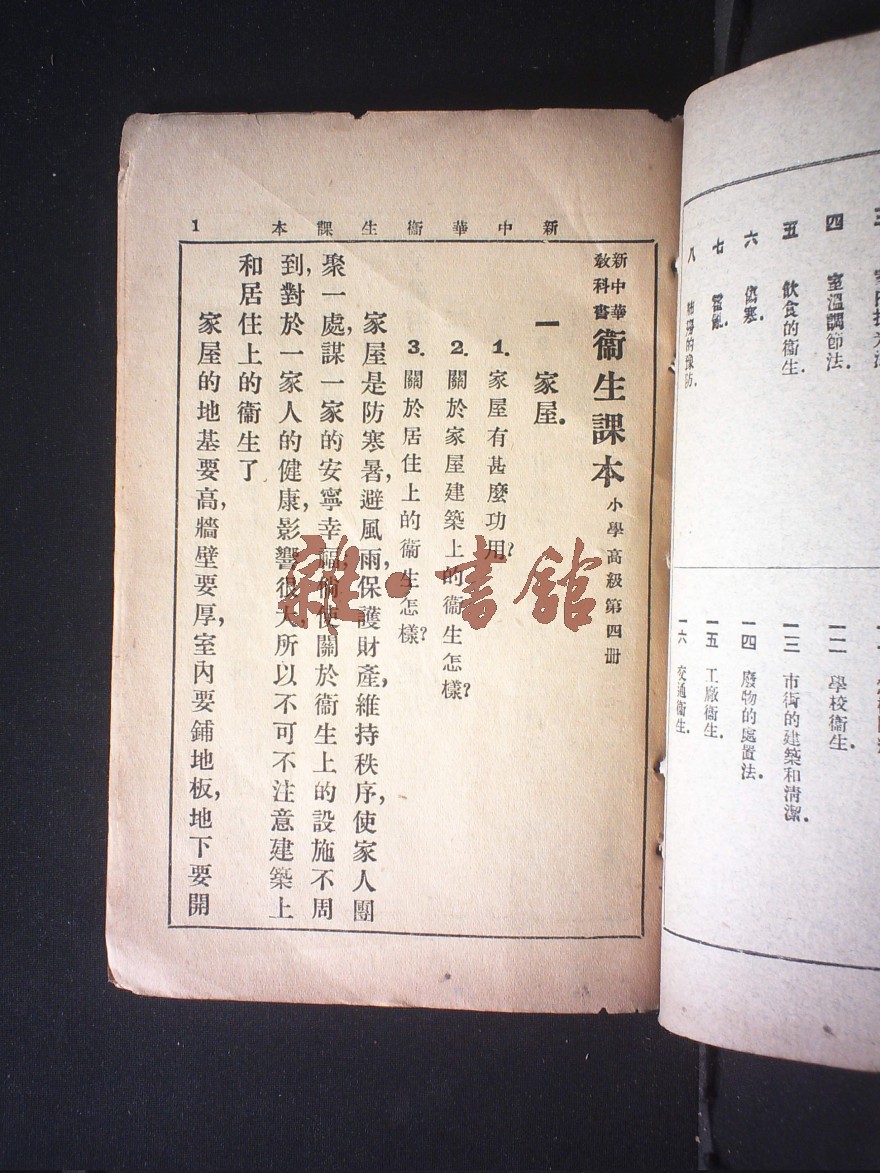 四 室溫調節法.
五 飲食的衞生.
六 傷寒.
七
八 的豫防.
一二 學校衞生.
一三 市街的建築和清潔.
一四 廢物的處置法.
一五 工廠衞生.
一六 交通衞生.
新中華衞生課本 1
新中華教科書 衞生課本 小學高級第四册
一 家屋.
1. 家屋有甚麼功用?
2. 關於家屋建築上的衞生怎樣?
3. 關於居住上的衞生怎樣?
家屋是防寒暑,避風雨,保護財產,維持秩序,使家人團
聚一處,謀一家的安寧幸福;倘使關於衞生上的設施不周
到,對於一家人的健康,影響很大,所以不可不注意建築上
和居住上的衞生了
家屋的地基要高,牆壁要厚,室內要鋪地板,地下要開
雜·書館